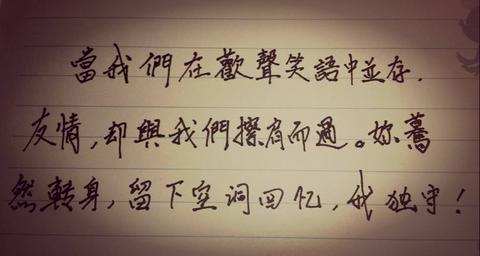 當我們在歡聲笑語中並存，
友情，却與我們擦肩而過。妳驀
然轉身，留下空洞回忆，我独守！